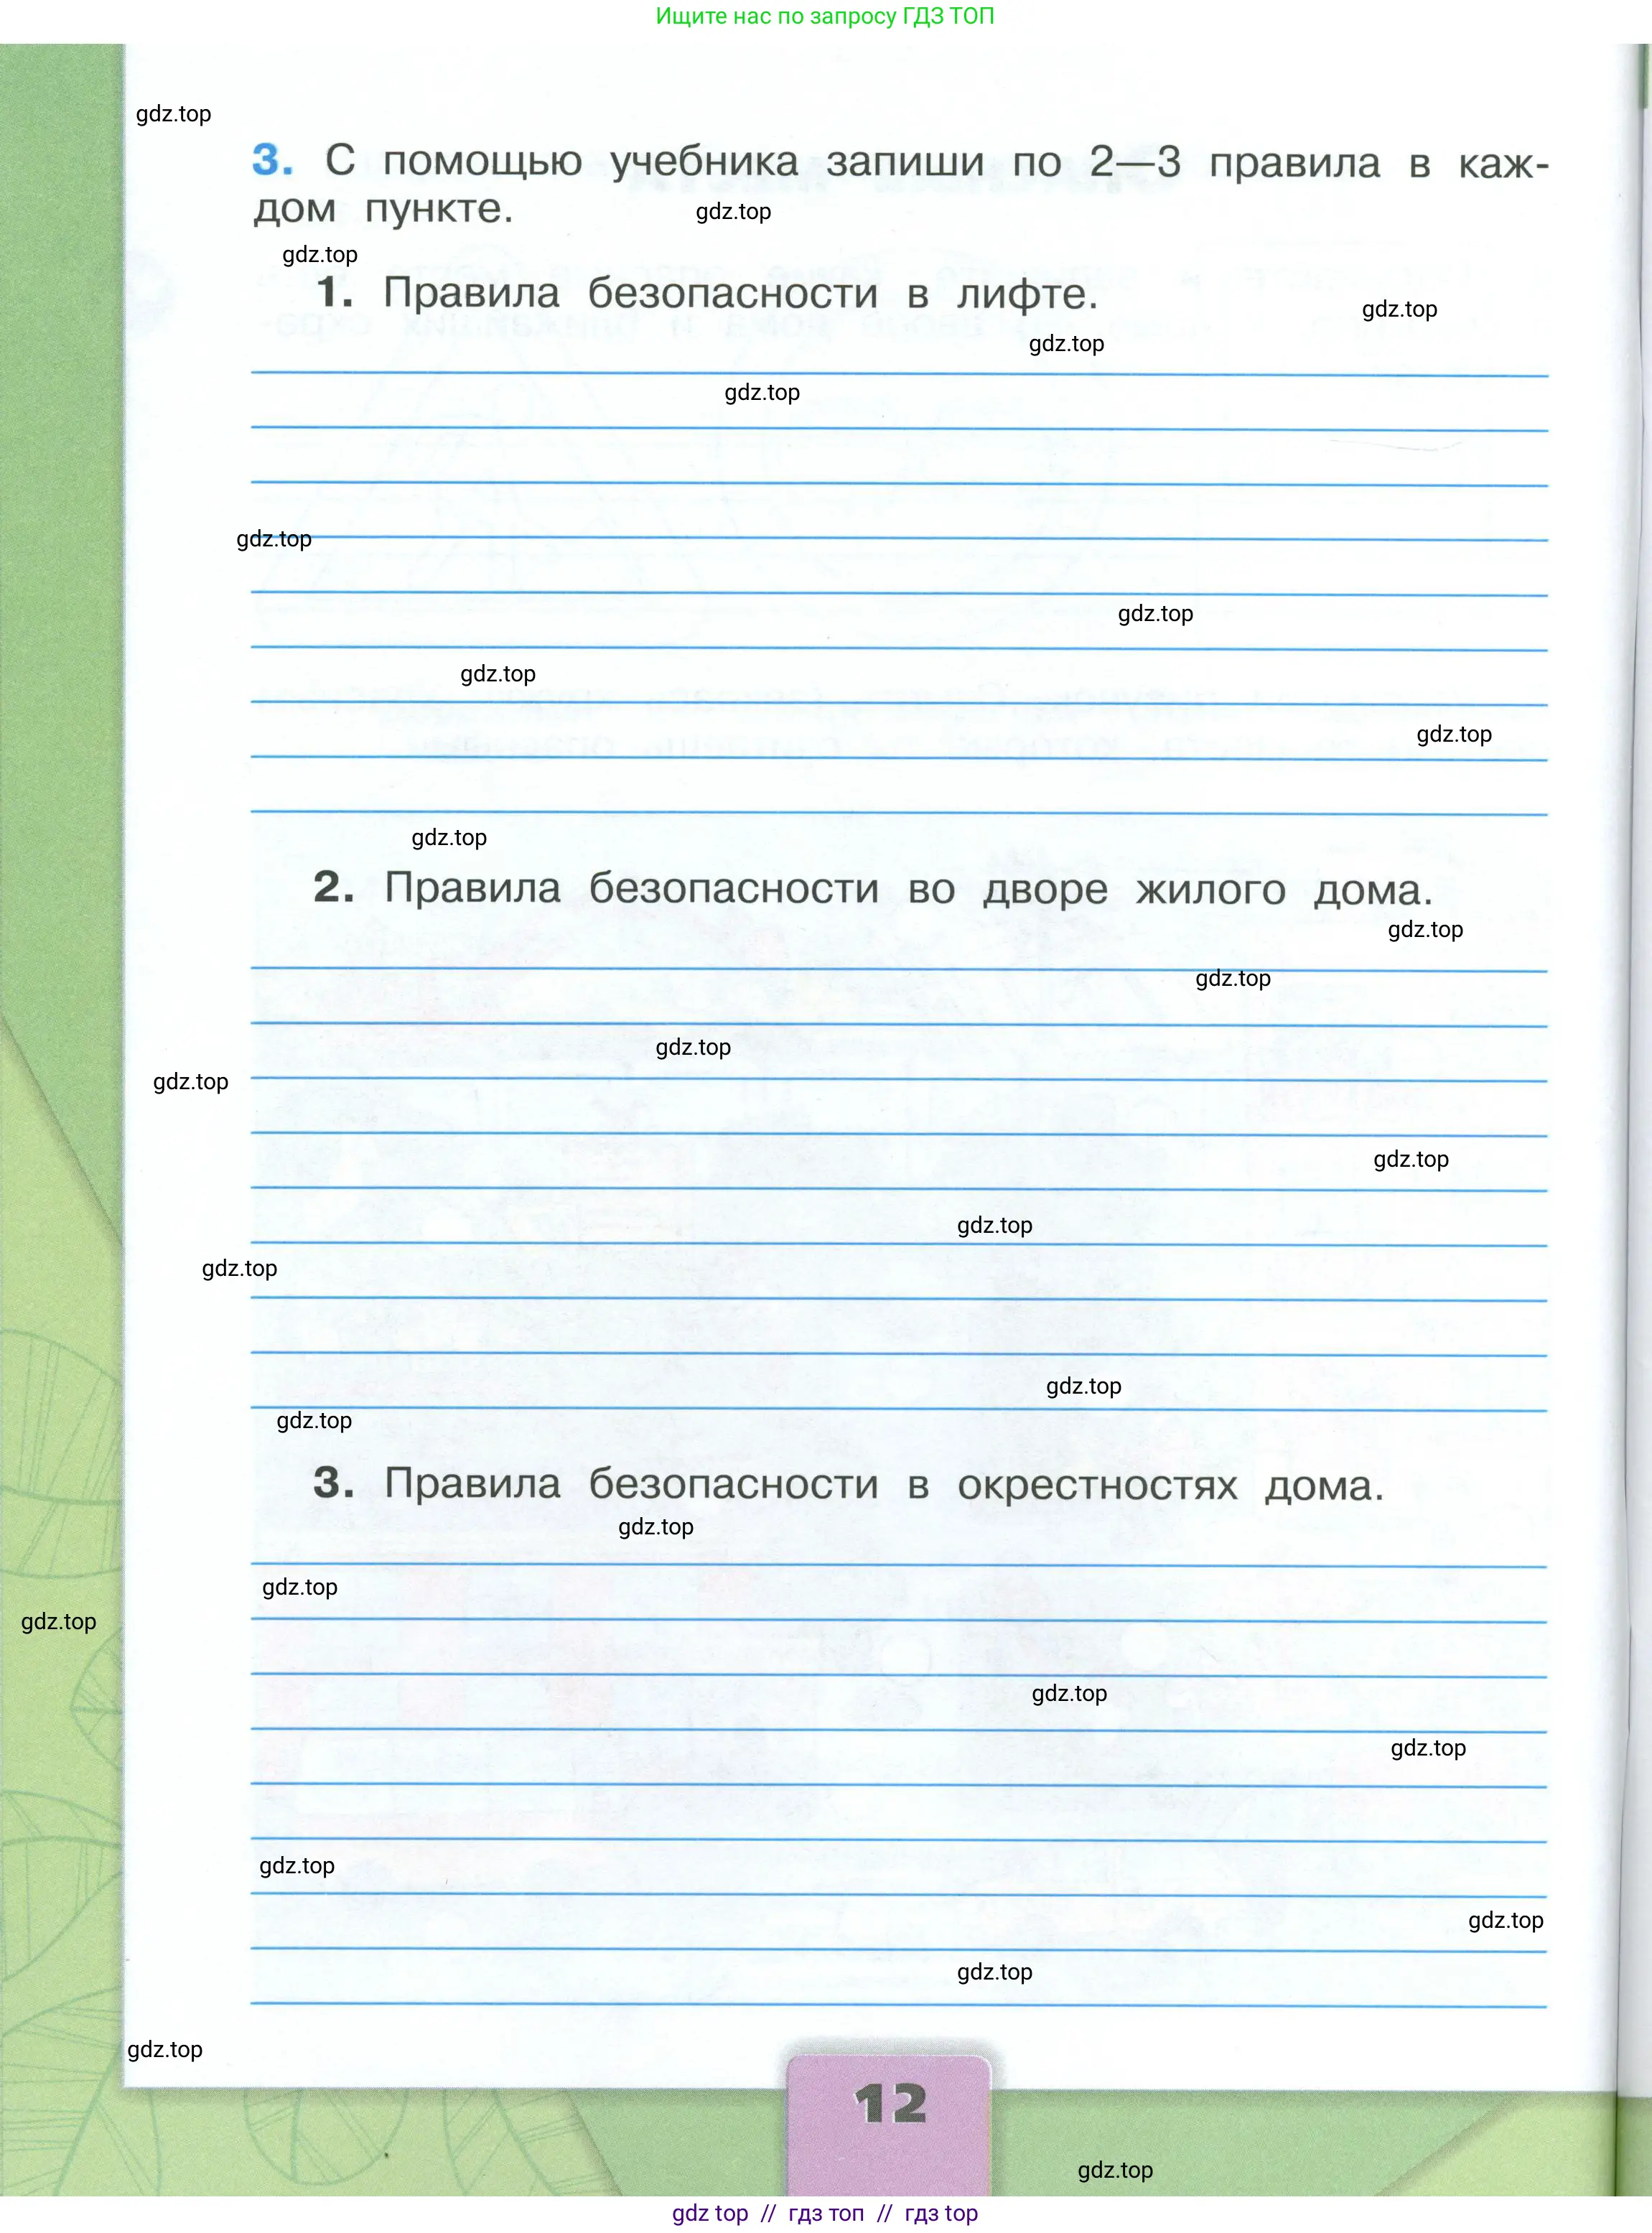 Ищите нас по запросу ГДЗ ТОП
gdz.top
3. С помощью учебника запиши по 2—3 правила в каж-
дом пункте.
gdz.top
gdz.top
1. Правила безопасности в лифте.
gdz.top
gdz.top
gdz.top
gdz.top
gdz.top
gdz.top
gdz.top
gdz.top
2. Правила безопасности во дворе жилого дома.
gdz.top
gdz.top
gdz.top
gdz.top
gdz.top
gdz.top
gdz.top
gdz.top
gdz.top
3. Правила безопасности в окрестностях дома.
gdz.top
gdz.top
gdz.top
gdz.top
gdz.top
gdz.top
gdz.top
gdz.top
gdz.top
12
gdz.top
gdz top // гдз топ // гдз top